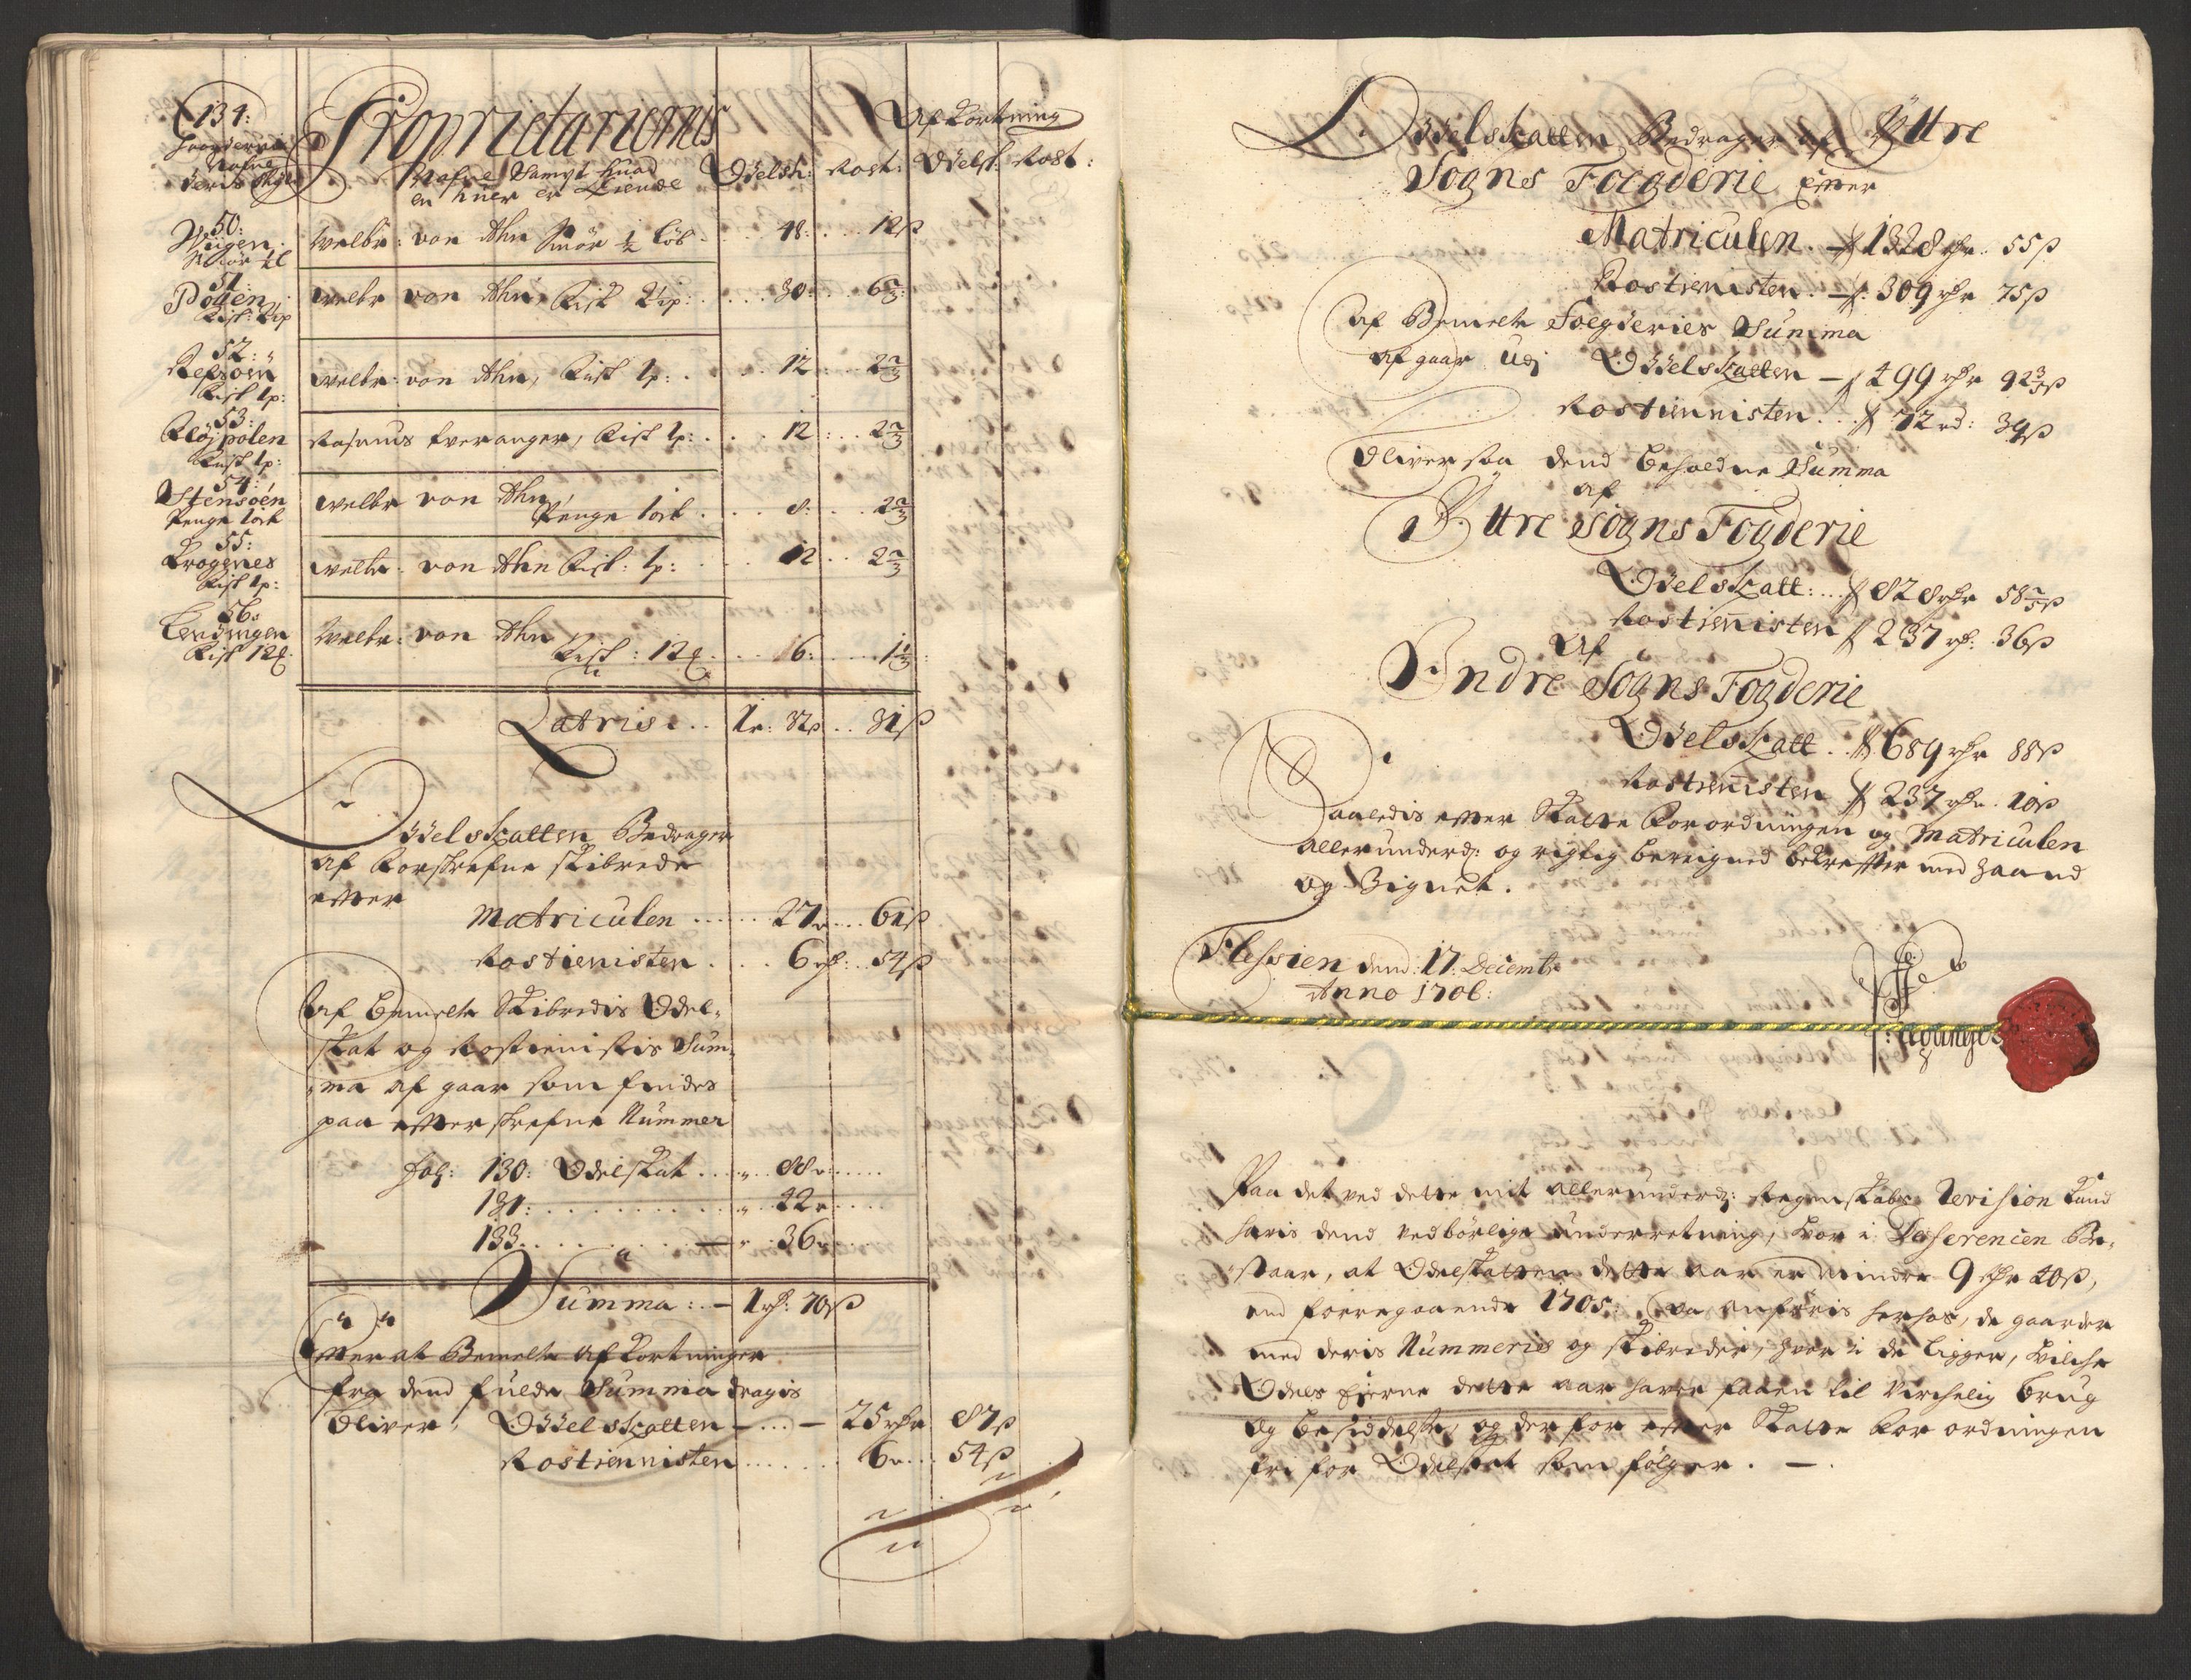 134:
Gaardernis
Nafne
deris Skyld
Proprietariernis
Nafne Samyt huad
en huer er Eiende
Afkortning
Odelsk: Rost: Odelsk: Rost:
50:
Wiigen
Smör ½ l
Welbr: von Ahn Smör ½ Löb . . . 48: . . . 12 ß
51:
Pollen
Fisk: 2½ p
Welbr von Ahn, Fisk 2½ p: . . . 30: . . 6⅔:
52:
Refsöen
Fisk 1 p:
Welbr: von Ahn, Fisk 1 p: . . . 12 : . . 2⅔
53:
Fløjpolen
Fisk 1 p:
Rasmus Tveranger, Fisk 1 p: . . . 12 : . . 2⅔
54:
Stensöen
Penge 1 ort
Welbr von Ahn
Penge 1 ort . . . 8: . . . 2⅔
55:
Krogenes
Fisk 1 p:
Welbr: von Ahn Fisk: 1 p: . . . 12 . . 2⅔
56:
Lendingen
Fisk 12 ℔
Welbr: von Ahn
Fisk: 12 ℔ . . . 6: . . . . 1⅓:
Latris: . . 1 r: 32 ß . . 31 ß
Odelskatten Bedrager
af forskrefne skibrede
efter
Matriculen . . . . . . 27 r . . . 61 ß
Rostienisten . . . . 6 rdr: . . 54 ß
Af bemelte Skibredis Odel-
skat og Rostienistis Sum-
ma af gaar som findes
paa efterskrefne Nummer
fol: 130: Odelskat . . . „ . . 88 r . . . . .
131: . . . . . . . . . . „ . . 22 r . . . .
133 . . . . . . . — „ . . 36 r . . .
Summa: . — 1 rdr: 70 ß
Efter at Bemelte Afkortninger
fra dend fulde Summa dragis
bliver, Odelskatten — . . . . — 25 rdr 87 ß
Rostiennisten . . . . . . . 6 r . . . 54 ß
Odelskatten Bedrager af Yttre
Sogns Foegderie Efter
Matriculen . — 1328 rdr . 55 ß
Rostienisten . — 309 rdr 75 ß
Af Bemelte Foegderies Summa
afgaar udj Odelskatten — 499 rdr 92⅗ ß
Rostiennisten . . . 72 rd: 39 ß
Bliver saa dend beholdne Summa
af
Yttre Sogns Fogderie
Odelskatt: . . . 828 rdr 58⅖ ß
Rostienisten 237 rdr: 36 ß
Af
Indre Sogns Fogderie
Odelskatt . . 689 rdr 88 ß
Rostienisten 237 rdr . 10 ß
Saaledis efter Skatte Forordningen og Matriculen
allerunderd: og rigtig beregned bekrefter med Haand
og Signet.
Flessien dend: 17: Decembr
Anno 1706:
Paa det ved dette mit allerunderd: Regenskabs Revision kund
haris dend vedbörlige underretning, hvor i Differencen Be-
staar, at Odelskatten dette aar er mindre 9 rdr 40 ß,
end forregaaende 1705: saa anföris herhos, de gaarder
med deris Nummeries og skibreder, hvor i de ligger, hvilche
Odels Eierne dette aar hafve faaen til virchelig brug
og besiddelse, og der for efter Skatte Forordningen
fri for Odelskat som følger . — .